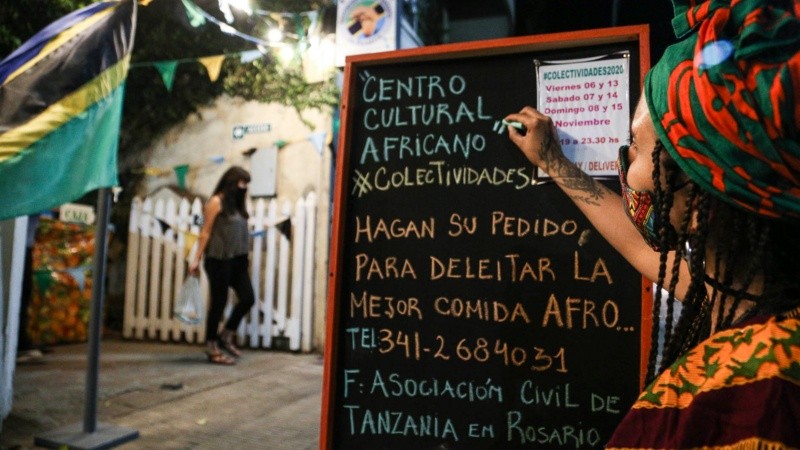 CENTRO
CULTURAL
AFRICANO
#COLECTIVIDADES.
HAGAN SU PEDIDO
PARA DELEITAR LA
MEJOR COMIDA AFRO...
TEL: 341-2684031
F: ASOCIACIÓN CIVIL DE
TANZANIA EN ROSARIO
#COLECTIVIDADES2020
Viernes 06 y 13
Sabado 07 y 14
Domingo 08 y 15
Noviembre
19 a 23.30 hs
/ DELIVER
CAJA